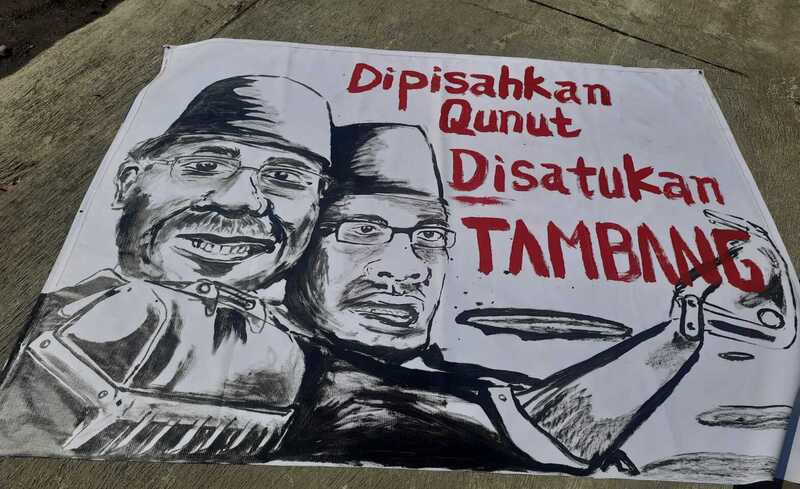 Dipisahkan
Qunut
Disatukan
TAMBANG